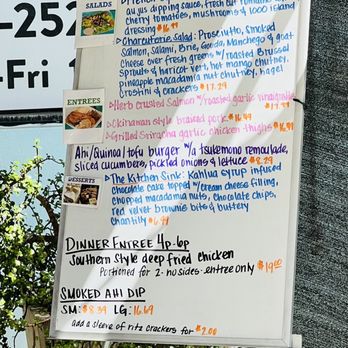 -252
-Fri
SALADS
au jus dipping sauce, fresh cut
cherry tomatoes, mushrooms & 1000 island
dressing $16.99
Charcuterie Salad: Prosciutto, Smoked
Salmon, Salami, Brie, Gouda, Manchego & goat
Cheese over fresh greens w/ roasted Brussel
Sprouts & haricot vert, hot mango chutney,
pineapple macadamia nut chutney, bagel
crostini & crackers $17.29
ENTREES
Herb crusted Salmon w/ roasted garlic vinaigrette
$17.29
Okinawan style braised pork $16.99
Grilled Sriracha garlic chicken thighs $16.99
Ahi/Quinoa/tofu burger w/a tsukemono remoulade,
sliced cucumbers, pickled onions & lettuce $8.29
DESSERTS
The Kitchen Sink: Kahlua syrup infused
chocolate cake topped w/ cream cheese filling,
chopped macadamia nuts, chocolate chips,
red velvet brownie bits & buttery
chantilly $6.99
DINNER ENTREE 4p-6p
Southern Style deep fried chicken
Portioned for 2-no sides-entree only $19.00
SMOKED AHI DIP
SM: $8.39 LG: 16.69
add a sleeve of ritz crackers for $2.00